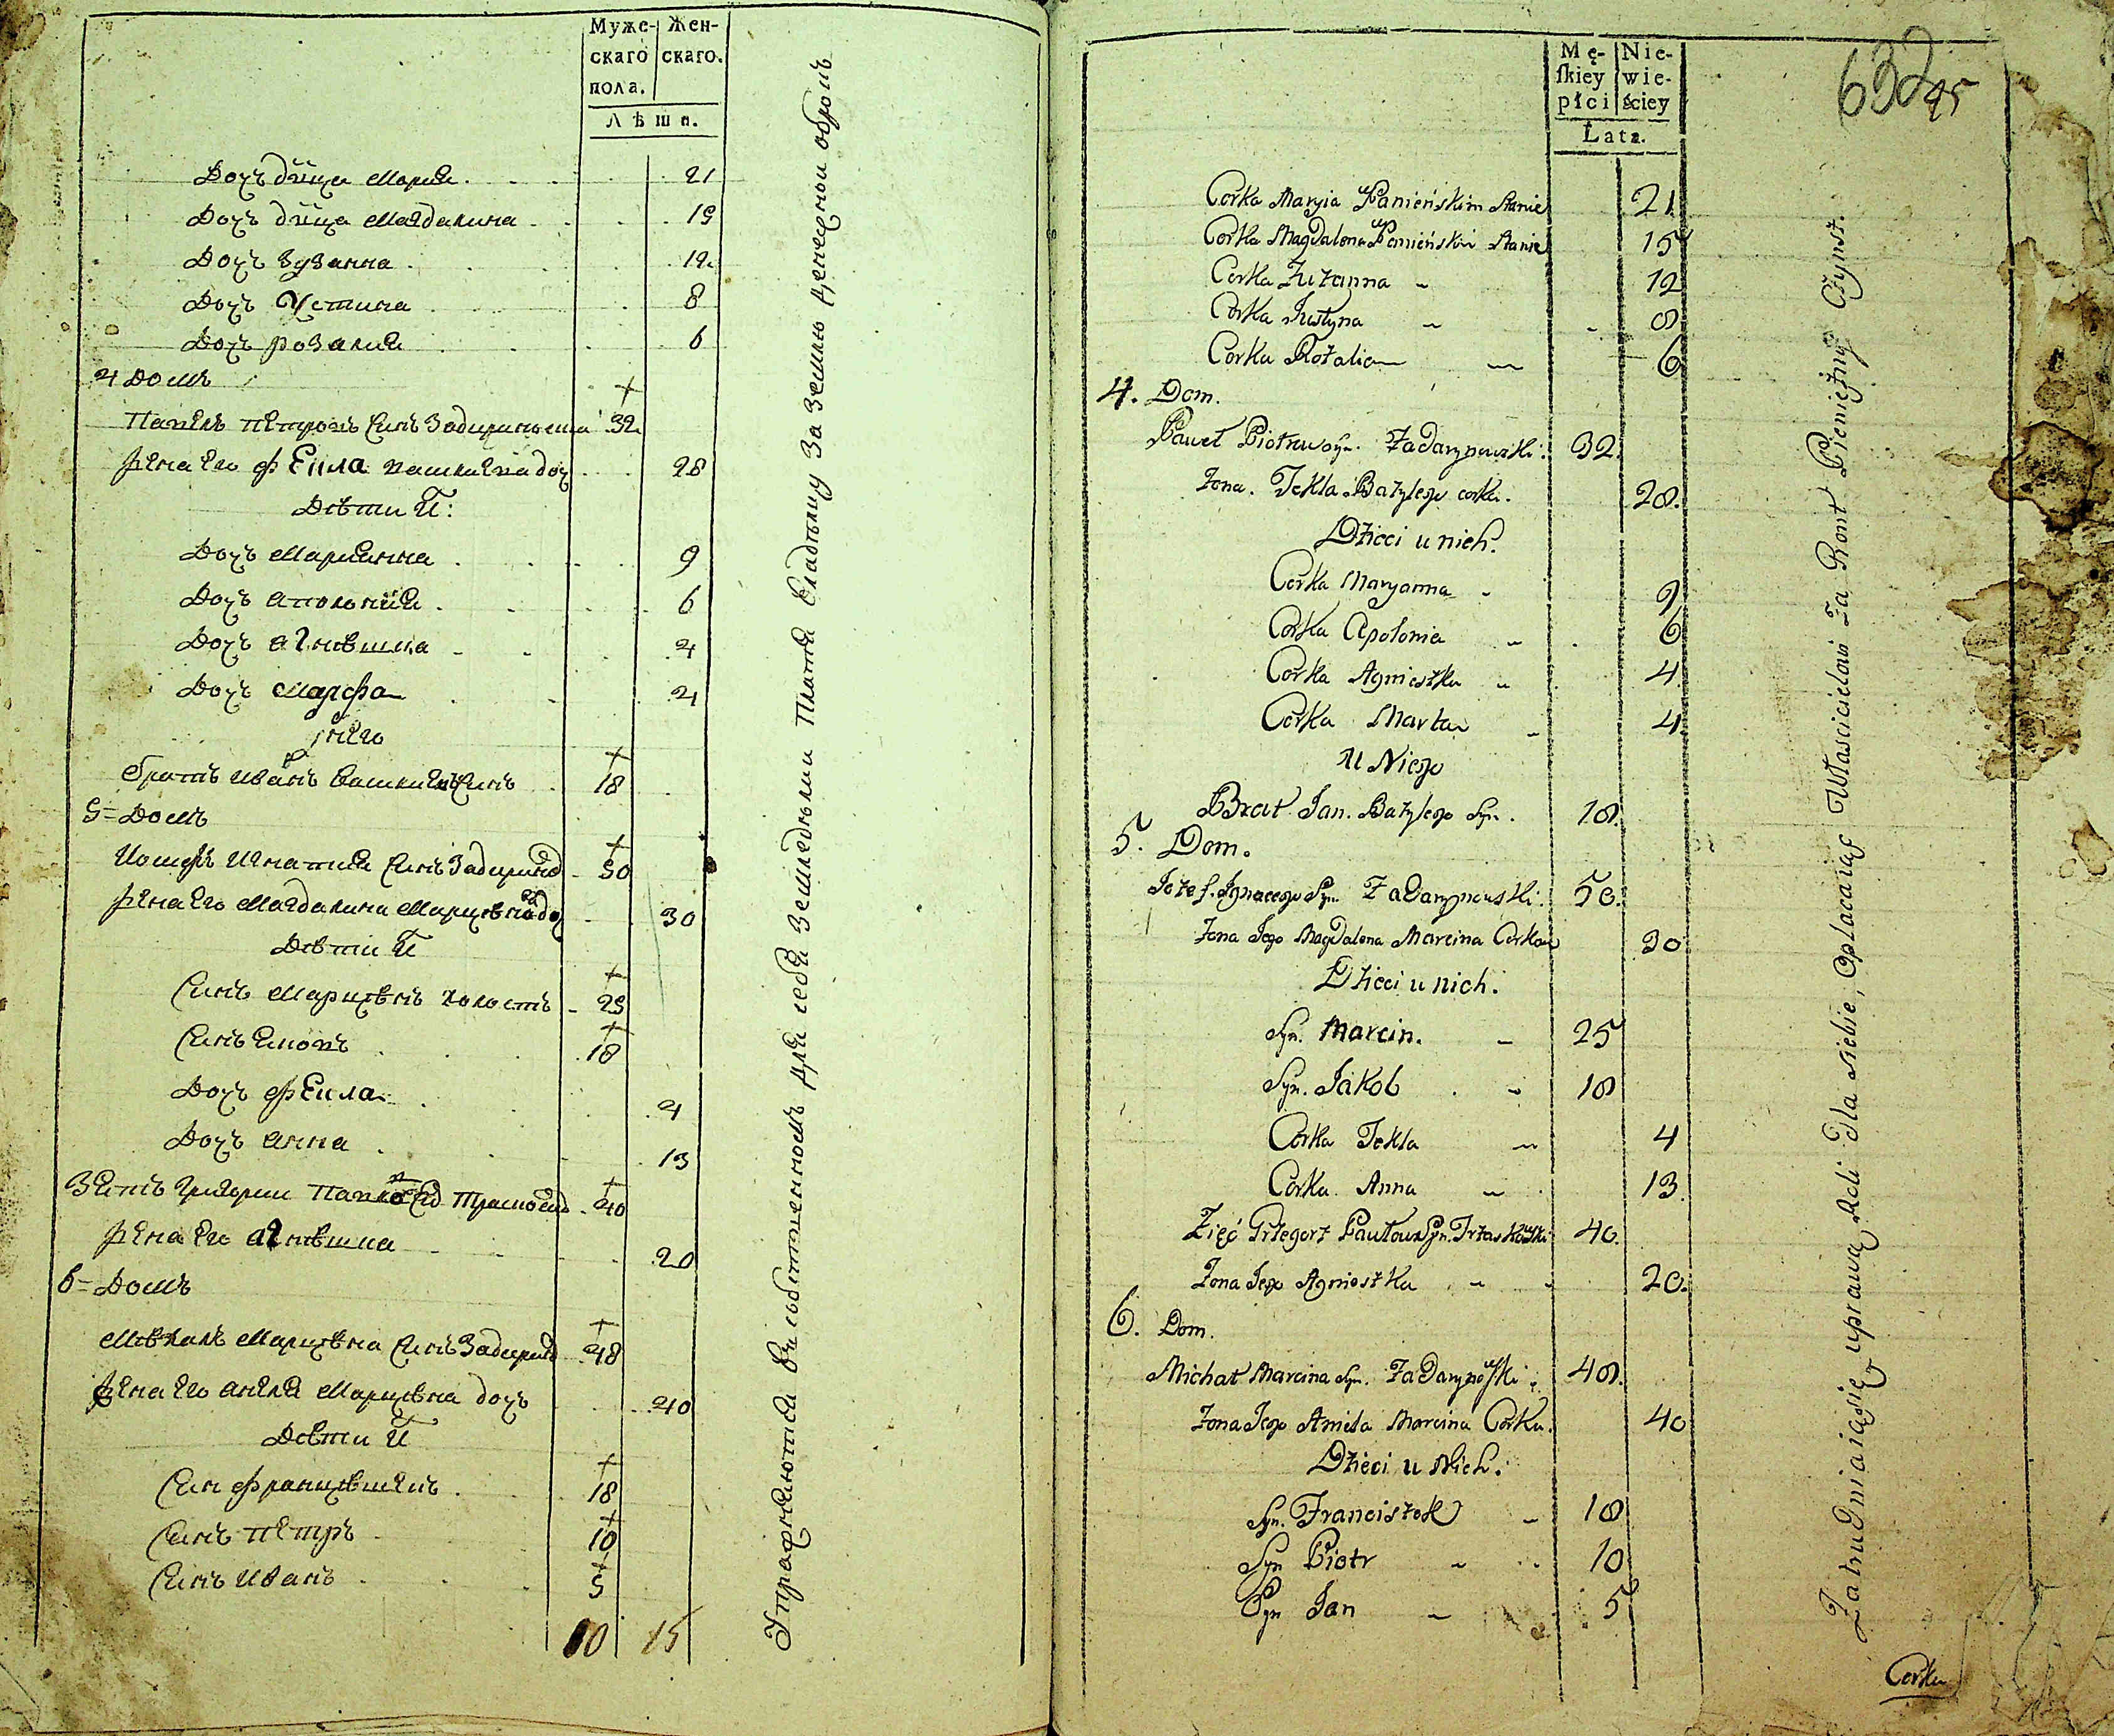 Муже- Жен-
скаго скаго.
пола.
Лѣта.
Дочъ дѣвца Мариа 21
Дочъ дѣвца Магдалина 15
Дочъ Зузанна 12
Дочъ Устина 8
Дочъ розалиа 6
4 Домъ
Павелъ Петровъ Синъ 32
жена его Фекла дочъ 28
Дѣти И:
Дочъ Марианна 9
Дочъ аполониа 6
Дочъ агнѣшка 4
Дочъ Марфа 4
у него
братъ Иванъ Синъ 18
5=Домъ
Иосифъ Игнатиа Синъ 50
жена его Магдалина дочъ 30
Дѣти И
Синъ Марцѣнъ холостъ 25
Синъ 18
Дочъ Фекла 4
Дочъ анна 13
Зять григории 40
жена его агнѣшка 20
6=Домъ
Мѣхалъ Марцѣна Синъ 48
жена его анеля Марцѣна дочъ 40
Дѣти И
Син Францѣшекъ 18
Синъ Петръ 10
Синъ Иванъ 5
10 15
Упражняются въ собственномъ для себя земледелии платя владельцу за землю денежной оброкъ
Mę- Nie-
skiey wie-
płci ściey
Lata.
632
95
Corka Maryia w Panieńskim Stanie 21
Corka Magdalena w Panieńskim Stanie 15
Corka Zuzanna 12
Corka Justyna 8
Corka Rozalia 6
4. Dom.
Paweł Piotra Syn. Zadarnowski 32.
Zona. Tekla Bazylego corka. 28.
Dzieci u nich.
Corka Maryanna 9
Corka Apolonia 6
Corka Agnieszka 4
Corka Marta 4
U Niego
Brat Jan. Bazylego Syn. 18.
5. Dom.
Jozef. Ignacego Syn. Zadarnowski. 50.
Zona Jego Magdalena Marcina Corka 30
Dzieci u nich.
Syn. Marcin. 25
Syn. Jakob 18
Corka Tekla 4
Corka. Anna 13.
Zięć Grzegorz Pawłow Syn. Trzaskowski 40.
Zona Jego Agnieszka 20.
6. Dom.
Michał Marcina Syn. Zadarnowski. 48.
Zona Jego Aniela Marcina Corka. 40
Dzieci u Nich.
Syn. Franciszek 18
Syn Piotr 10
Syn Jan 5
Zatrudniaią się uprawą Roli Dla siebie, Opłacaiąc Właścicielowi Za Gont Pienięzny Czynsz.
Corka